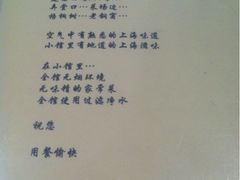 弄堂口…菜场边…
梧桐树…老钢窗…
空气中有熟悉的上海味道
小馆里有地道的上海滋味
在小馆里…
全馆无烟环境
无味精的家常菜
全馆使用过滤净水
祝您
用餐愉快